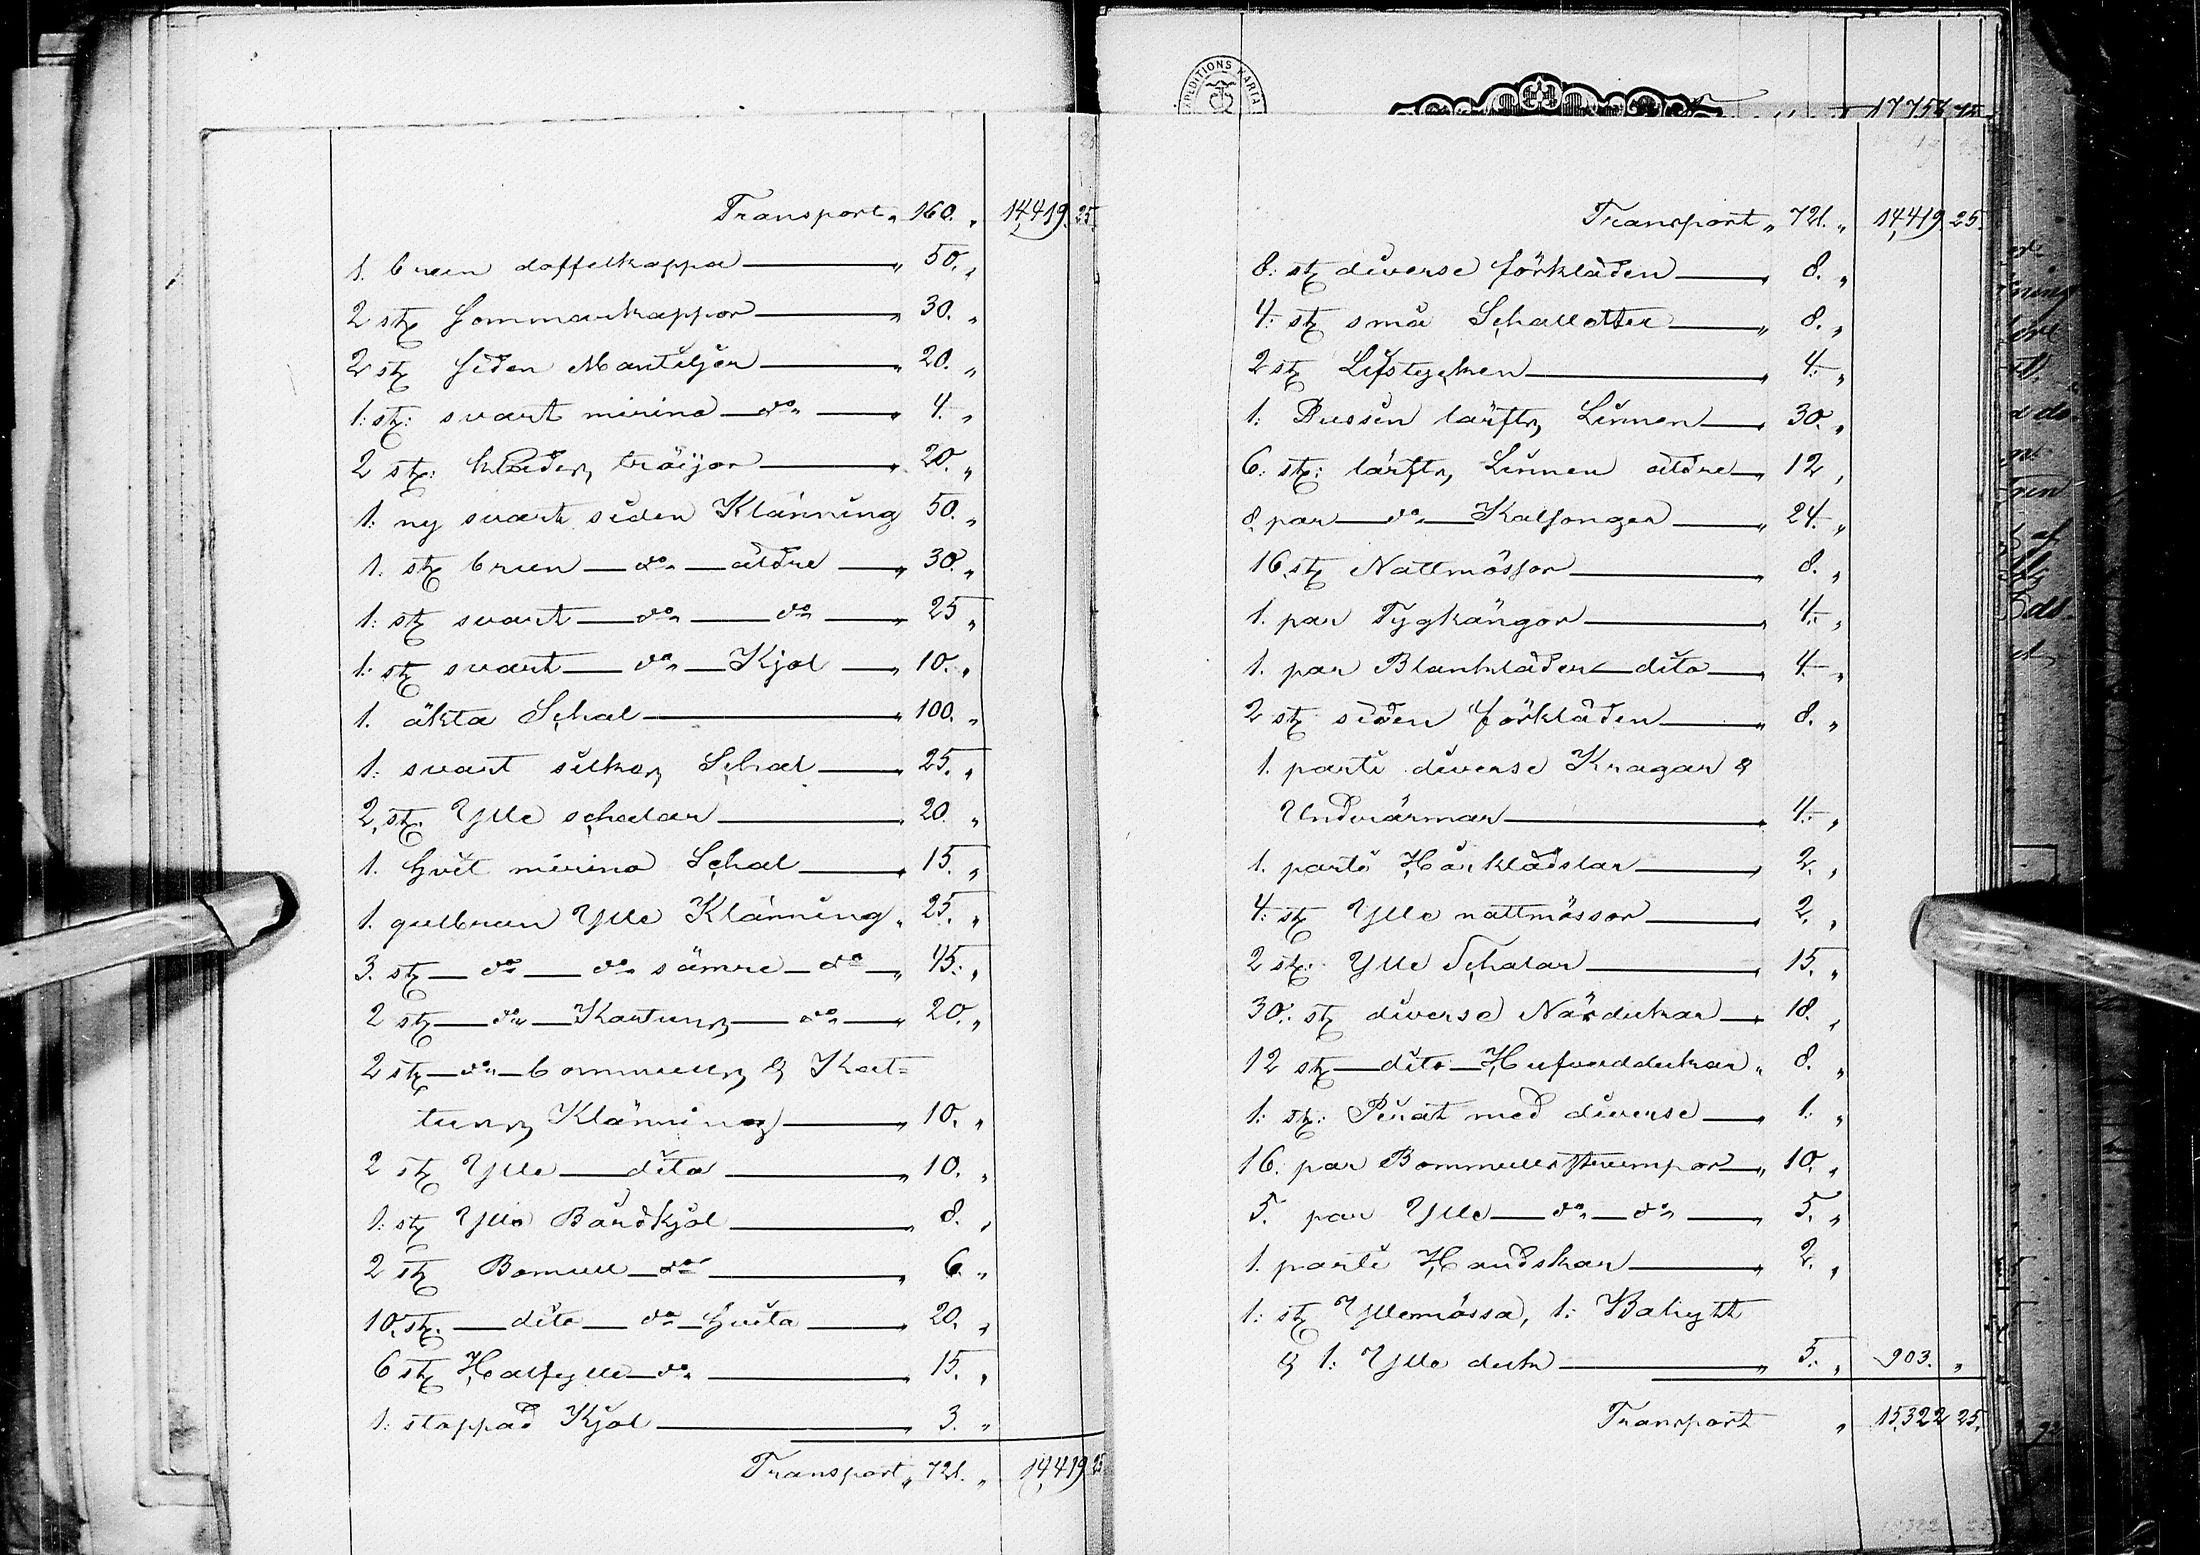 Transport „ 160. „ 14,419. 25.
1. brun doffelkappa „ 50. „
2 st. Sommarkappor „ 30. „
2 st. Siden Mantiljer „ 20. „
1: st: svart mirino do „ 4. „
2 st: klädes tröijor „ 20. „
1: ny svart siden Klänning 50. „
1. st brun do äldre „ 30. „
1: st svart do do „ 25 „
1: st svart do Kjol „ 10. „
1. äkta Schal „ 100. „
1: svart silkes Schal „ 25. „
2, st. Ylle schalar „ 20. „
1. hvit mirino Schal „ 15. „
1. gulbrun Ylle Klänning „ 25. „
3. st do do sämre do „ 45. „
2 st do Kartuns do „ 20. „
2 st do bommulls & Kat=
tuns Klänning „ 10. „
2 st Ylle dito „ 10. „
1: st Ylle Bårdkjol „ 8. „
2 st Bomull do „ 6. „
10. st. dito do hvita „ 20. „
6 st Halfylle do „ 15. „
1: stoppad Kjol „ 3. „
Transport „ 721. „ 14,419 25
EXPEDITIONS KARTA
17756 75
Transport „ 721. „ 14,419 25.
8: st diverse förkläden „ 8. „
4: st små Schalotter „ 8. „
2 st Lifstycken „ 4. „
1: Dussin lärfts Linnen „ 30. „
6: st: lärfts Linnen äldre „ 12 „
8. par do Kalsonger „ 24. „
16. st Nattmössor „ 8. „
1. par Tygkängor „ 4. „
1. par Blankläder dito „ 4. „
2 st siden förkläden „ 8. „
1. parti diverse Kragar &
Undvärmar „ 4. „
1. parti Hårklädslar „ 2. „
4: st Ylle nattmössor „ 2. „
2 st: Ylle Schalar „ 15. „
30. st diverse Näsdukar „ 18. „
12 st dito Hufvuddukar „ 8. „
1: st: Pirat med diverse „ 1: „
16. par Bommullsstrumpor „ 10. „
5. par Ylle do do „ 5. „
1. parti Handskar „ 2. „
1: st Yllemössa, 1: Bahytt
& 1: Ylle duk „ 5. „ 903. „
Transport „ 15,322 25.